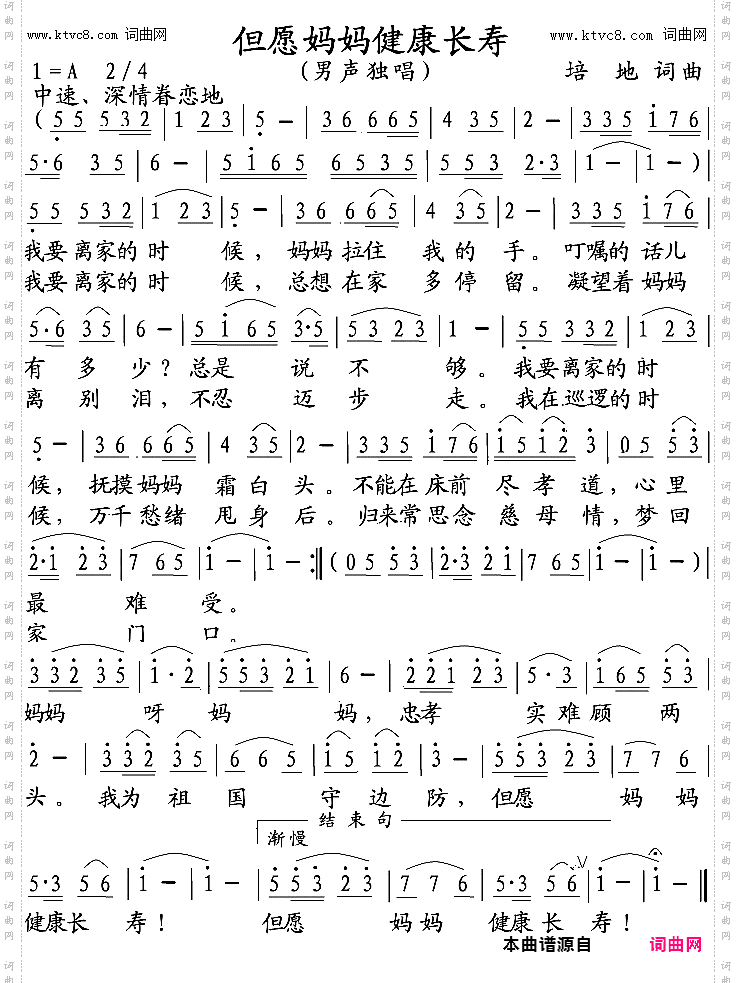 www.ktvc8.com 词曲网
但愿妈妈健康长寿
www.ktvc8.com 词曲网
1=A 2/4
(男声独唱)
培 地 词曲
中速、深情眷恋地
(55 532 | 1 23 | 5 - | 36 665 | 4 35 | 2 - | 335 176 |
5·6 35 | 6 - | 5165 6535 | 553 2·3 | 1 - | 1 - ) |
55 532 | 1 23 | 5 - | 36 665 | 4 35 | 2 - | 335 176 |
我要离家的时 候，妈妈拉住 我的 手。叮嘱的话儿
我要离家的时 候，总想在家 多停 留。凝望着妈妈
5·6 35 | 6 - | 5165 3·5 | 53 23 | 1 - | 55 532 | 1 23 |
有 多 少？总是 说 不 够。我要离家的时
离 别 泪，不忍 迈 步 走。我在巡逻的时
5 - | 36 665 | 4 35 | 2 - | 335 176 | 15 12 | 3 - | 05 53 |
候，抚摸妈妈 霜白头。不能在床前 尽孝 道，心里
候，万千愁绪 甩身 后。归来常思念 慈母 情，梦回
2·1 23 | 7 65 | 1 - | 1 - :‖ (05 53 | 2·3 21 | 7 65 | 1 - | 1 - ) |
最 难 受。
家 门 口。
33 23 35 | 1·2 | 553 21 | 6 - | 221 23 | 5·3 | 165 53 |
妈妈 呀 妈 妈，忠孝 实难顾 两
2 - | 332 35 | 6 65 | 15 12 | 3 - | 553 23 | 7 76 |
头。我为 祖 国 守 边 防，但愿 妈 妈
结 束 句
渐慢
5·3 56 | 1 - | 1 - | 553 23 | 7 76 | 5·3 56 | 1 - | 1 - ‖
健康长 寿！ 但愿 妈妈 健康长 寿！
本曲谱源自 词曲网